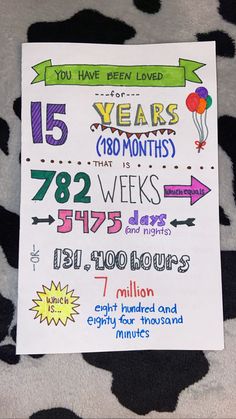 YOU HAVE BEEN LOVED
for
15 YEARS
(180 MONTHS)
THAT IS
782 WEEKS which equals
5475 days
(and nights)
-OR-
131,400 hours
Which
is...
7 million
eight hundred and
eighty four thousand
minutes